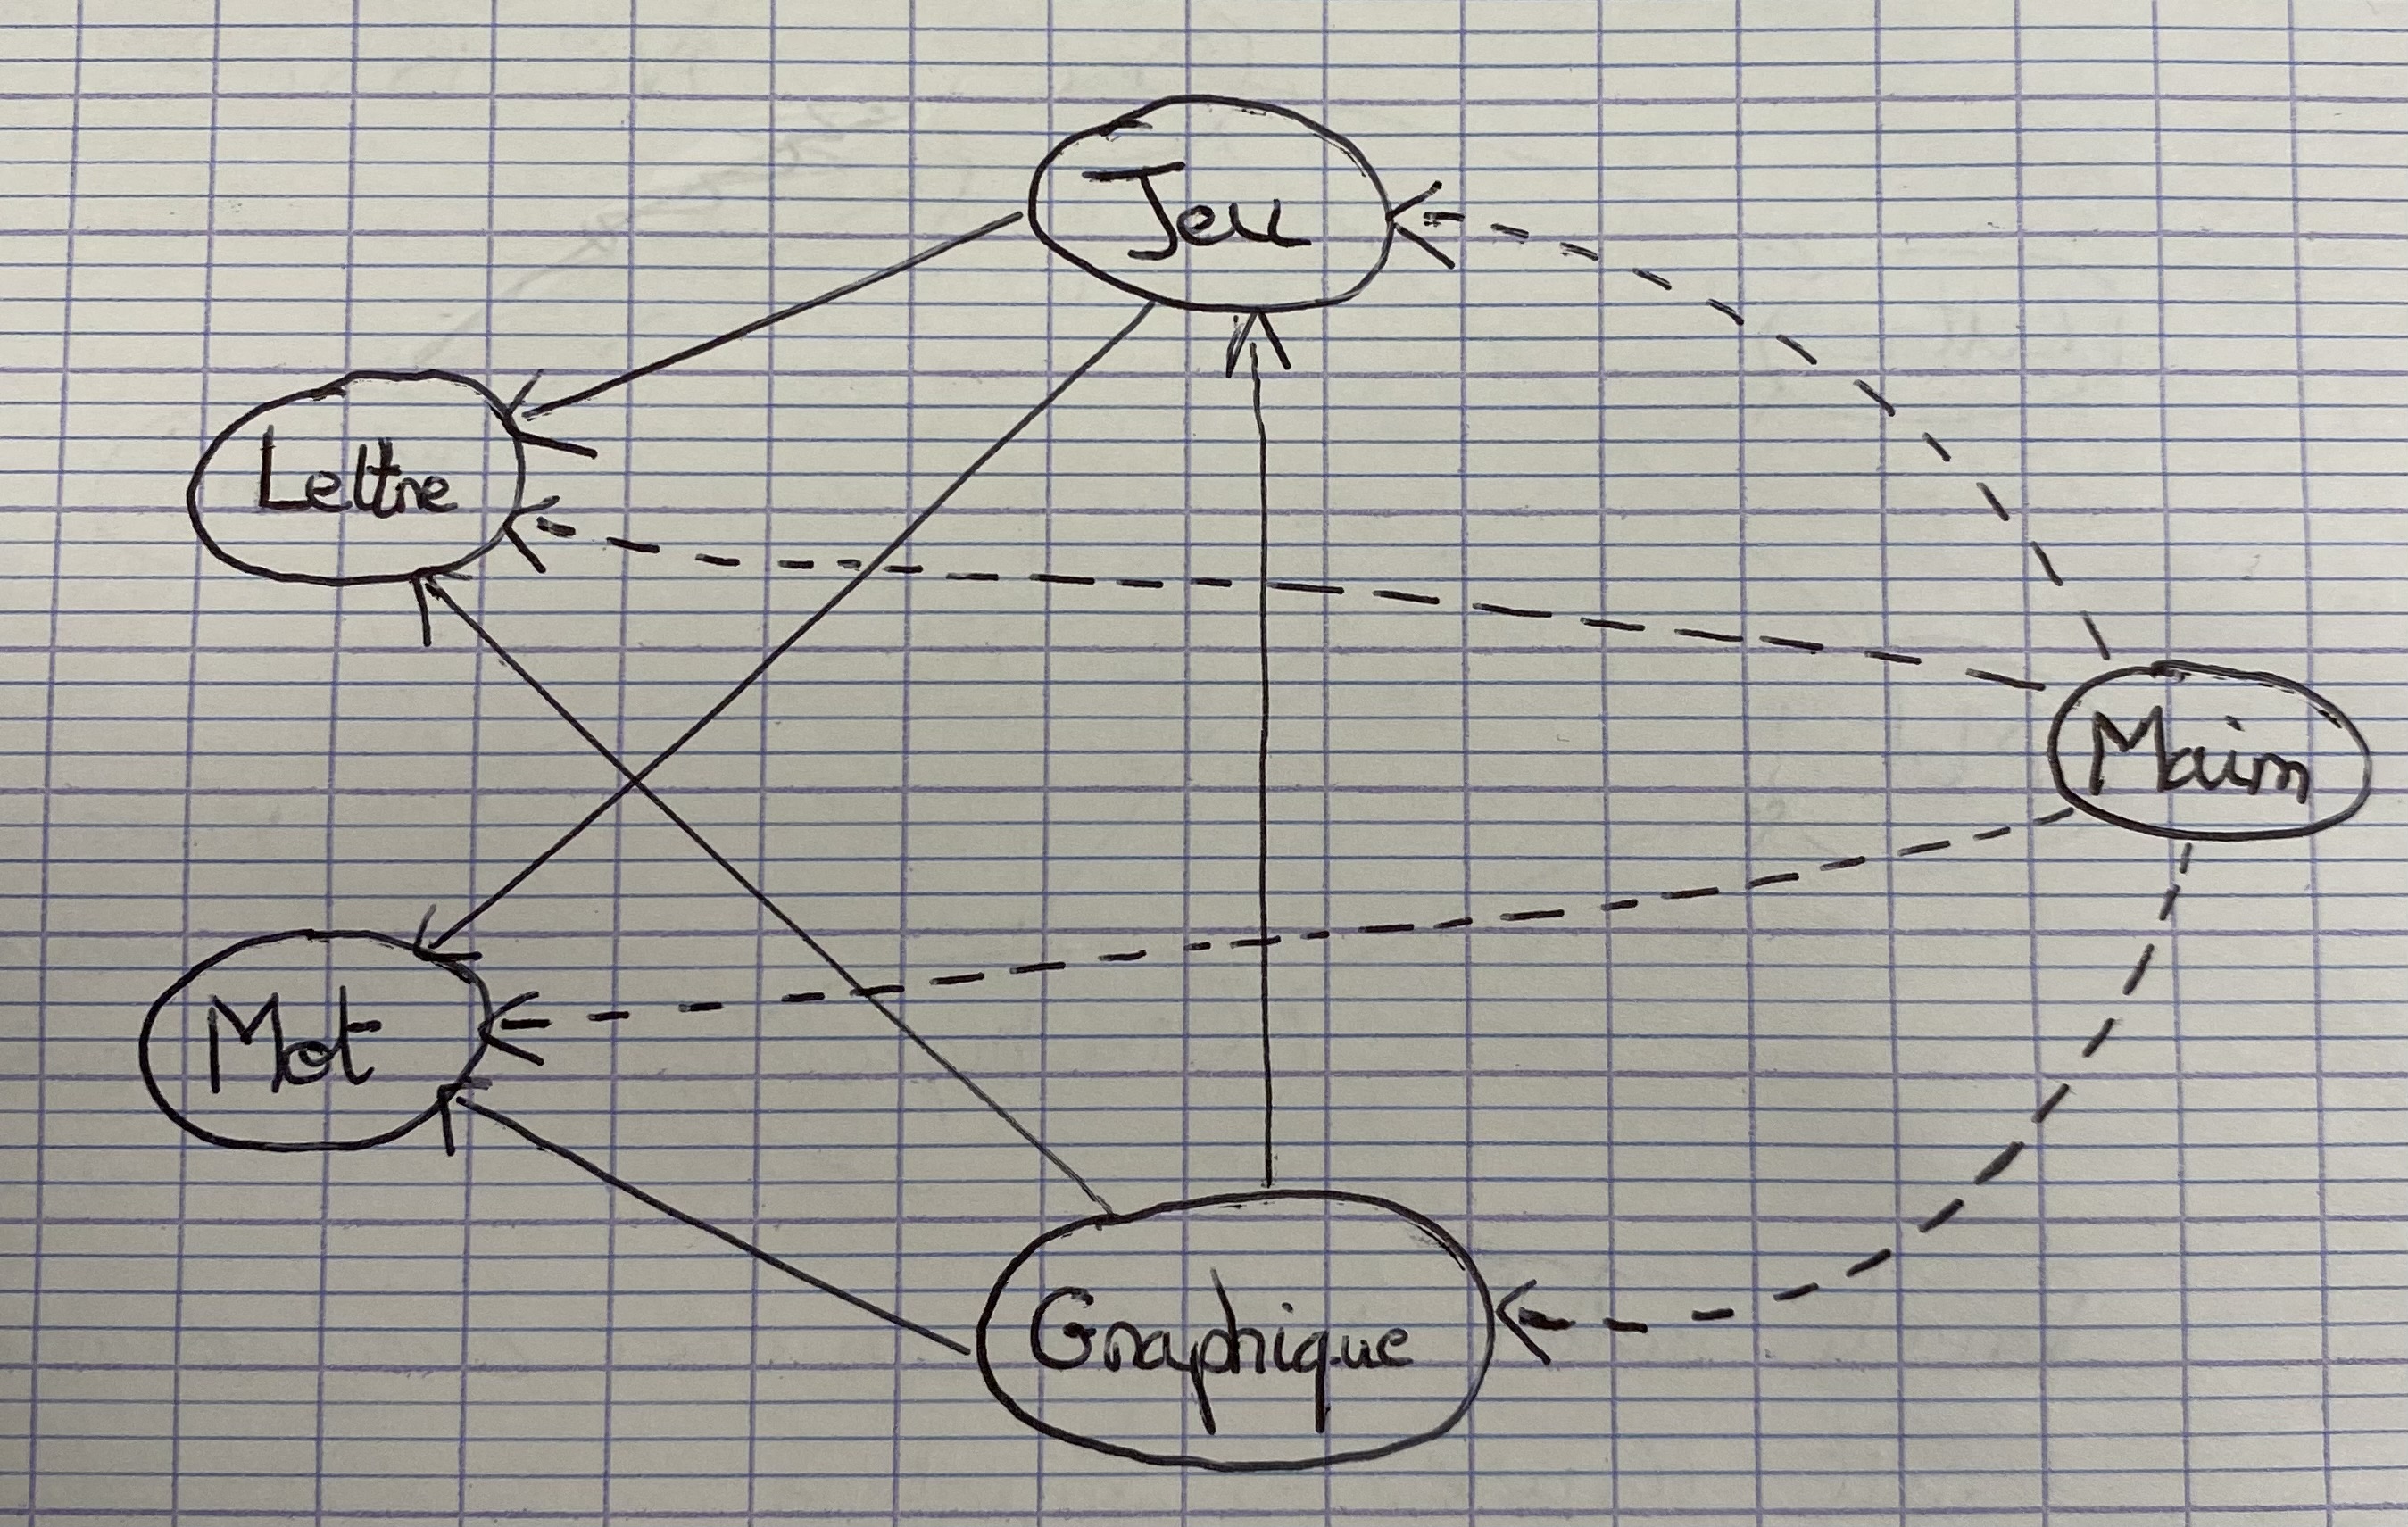 Jeu
Lettre
Main
Mot
Graphique